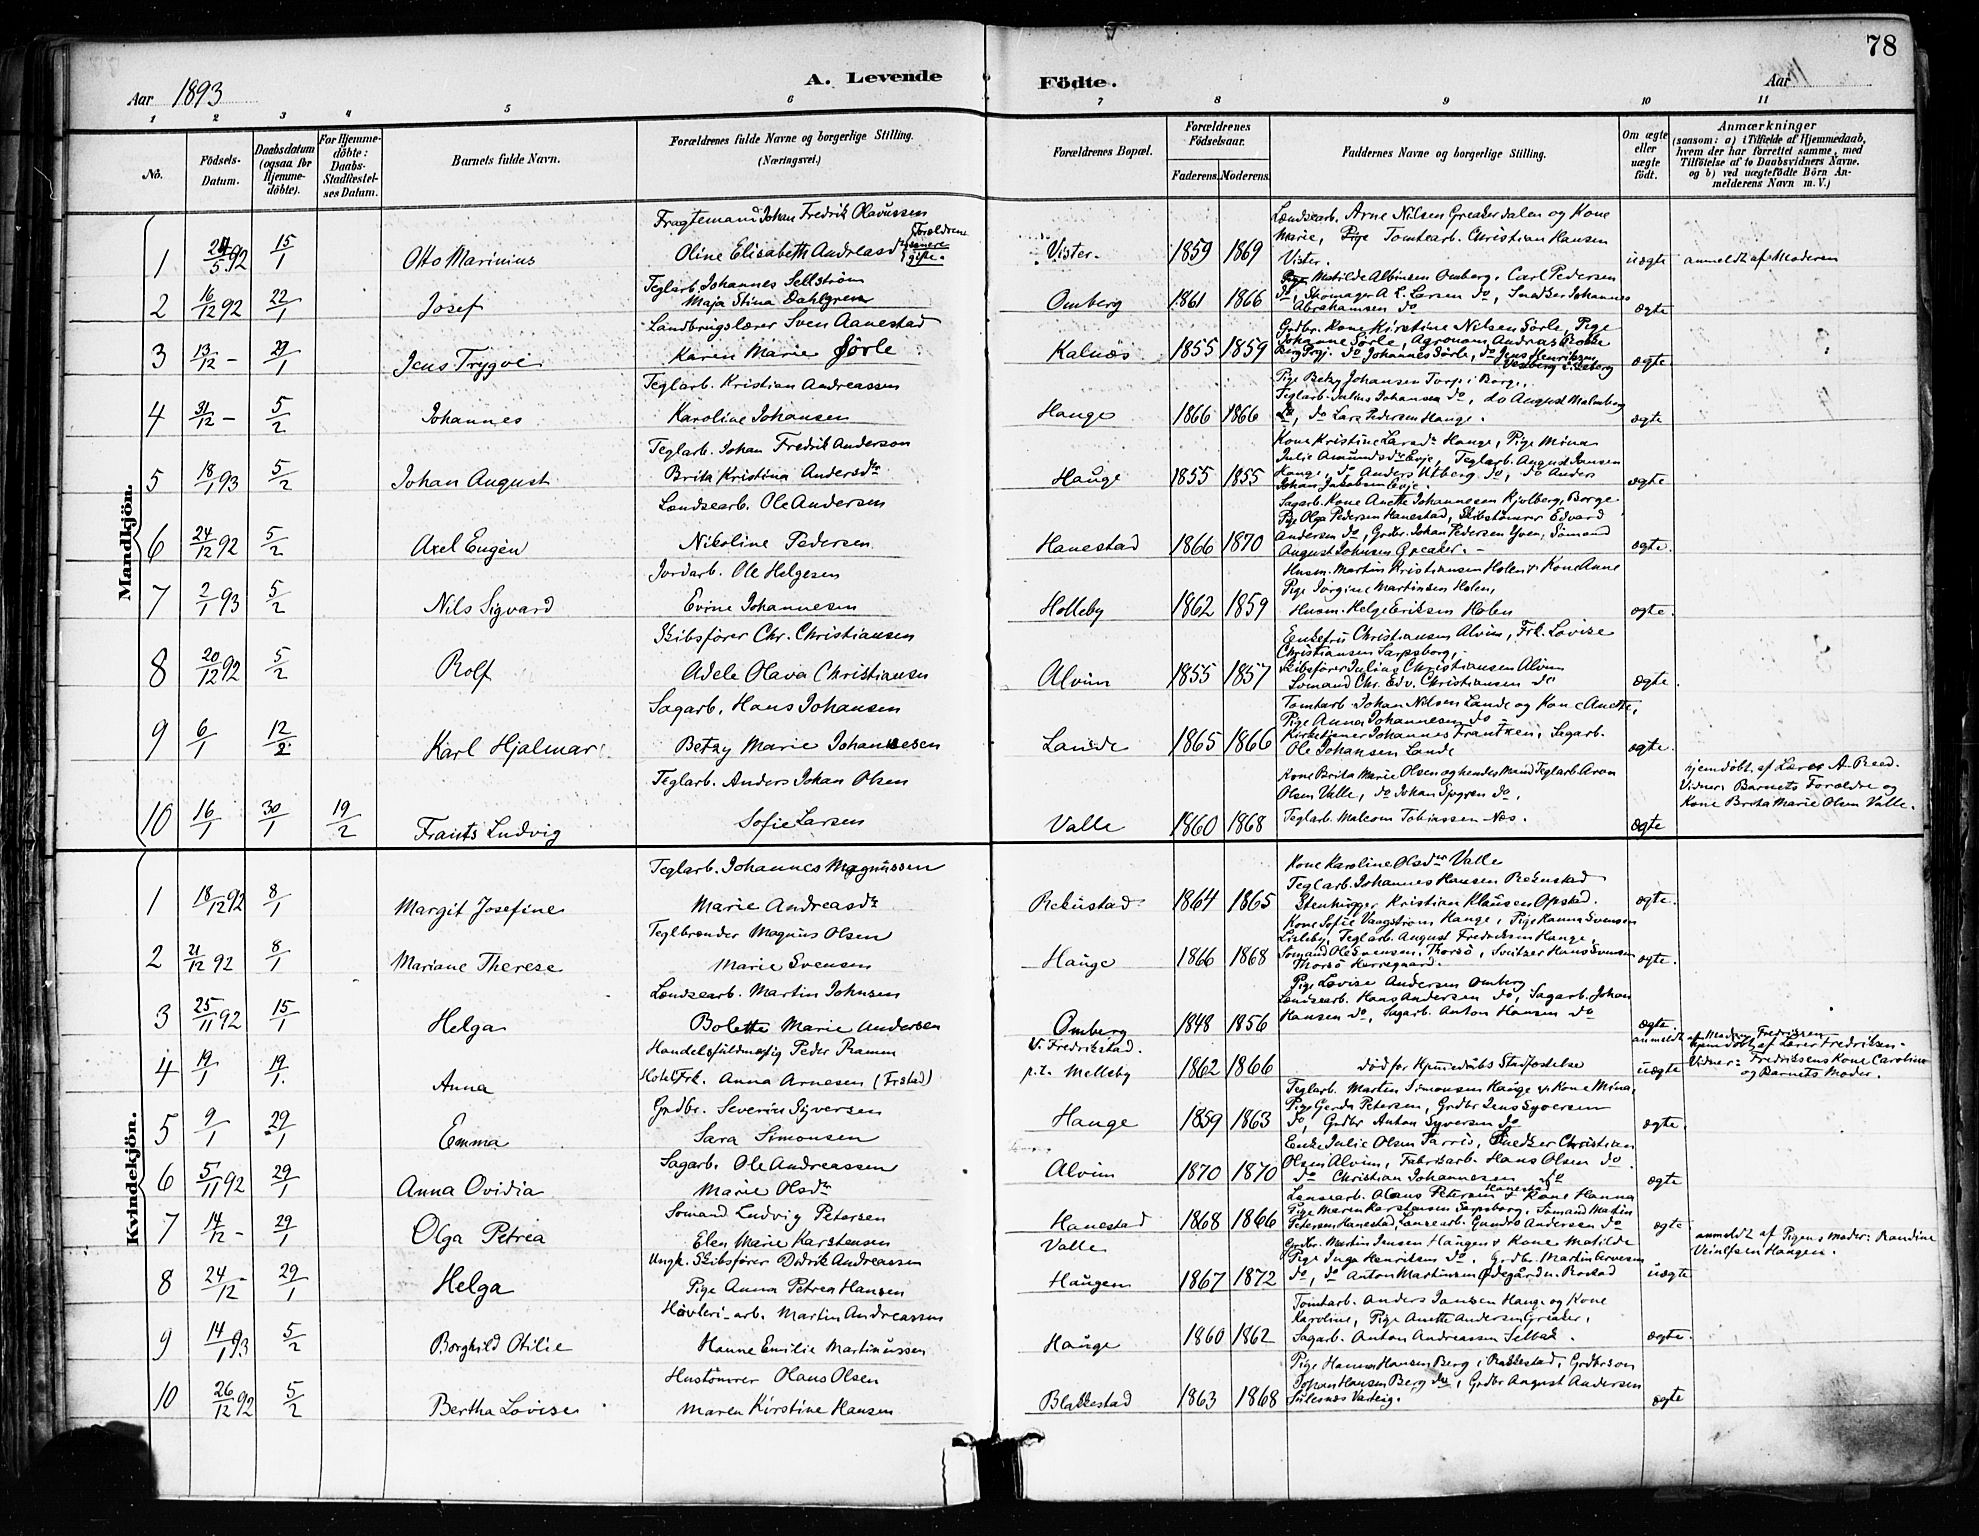 78
A. Levende Födte.
Aar 1893
Aar
1 2 3 4 5 6 7 8 9 10 11
No.
Födsels-Datum.
Daabsdatum (ogsaa for Hjemmedöbte).
For Hjemmedöbte: Daabs-Stadfæstelses Datum.
Barnets fulde Navn.
Forældrenes fulde Navne og borgerlige Stilling. (Næringsvei.)
Forældrenes Bopæl.
Forældrenes Födselsaar. Faderens. Moderens.
Faddernes Navne og borgerlige Stilling.
Om ægte eller uægte födt.
Anmærkninger (saasom: a) i Tilfælde af Hjemmedaab, hvem der har forrettet samme, med Tilföielse af to Daabsvidners Navne. og b) ved uægtefödte Börn Anmelderens Navn m. V.)
Mandkjön.
1 5 92 15/1 Otto Marinius
Fragtemand Johan Fredrik Olavussen
Oline Elisabeth Andreasd Forældrene senere gifte.
Vister. 1859 1869
Landsearb. Arne Nilsen Greakerdalen og Kone
Marie, Pige Tomtearb. Christian Hansen
Vister.
uægte anmeldt af Moderen
2 16/12 92 22/1 Josef
Teglarb. Johannes Sellström
Maja Stina Dahlgren
Omberg 1861 1866
Matilde Albinsen Omberg, Carl Pedersen
do, Skomager A. L. Larsen do, Snedker Johannes
Abrahamsen do
ægte
3 13/12 - 29/1 Jens Trygve
Landbrugslærer Sven Aanestad
Karen Marie Sörle
Kalnæs 1855 1859
Grdbr. Kone Kirstine Nilsen Sörle, Pige
Johanne Sörle, Agronom Andreas
do Johannes Sörle, do Jens Henriksen
ægte
4 31/12 - 5/2 Johannes
Teglarb. Kristian Andreassen
Karoline Johansen
Hauge 1866 1866
Pige Betzy Johansen Torp i Borge,
Teglarb. Julius Johansen do, do August Malmberg
do, do Lars Pedersen Hauge.
ægte
5 18/1 93 5/2 Johan August
Teglarb. Johan Fredrik Anderson
Brita Kristina Andersdtr
Hauge 1855 1855
Kone Kristine Larsdr Hauge, Pige Mina
Julie Amundsdr Evje, Teglarb. August Jansen
Hauge, do Anders Utberg do, do Anders
Johan Jakobsen Evje.
ægte
6 24/12 92 5/2 Axel Eugén
Landsearb. Ole Andersen
Nikoline Pedersen
Hanestad 1866 1870
Sagarb. Kone Anette Johannesen Kjølberg, Borge
Pige Olga Pedersen Hanestad, Skibstömrer Edvard
Andersen do, Grdbr. Johan Pedersen Yven, Sömand
August Johnsen Greaker.
ægte.
7 2/1 93 5/2 Nils Sigvard
Jordarb. Ole Helgesen
Evine Johannesen
Holleby 1862 1859
Husm. Martin Kristiansen Holen & Kone Anne
Pige Jörgine Martinsen Holen,
Husm. Helge Eriksen Holen
ægte.
8 20/12 92 5/2 Rolf
Skibsförer Chr. Christiansen
Adele Olava Christiansen
Alvim 1855 1857
Enkefru Christiansen Alvim, Frk. Lovise
Christiansen Sarpsborg,
Skibsförer Julius Christiansen Alvim
Sömand Chr. Edv. Christiansen do
ægte
9 6/1 12/2 Karl Hjalmar
Sagarb. Hans Johansen
Betzy Marie Johannesen
Lande 1865 1866
Tomtarb. Johan Nilsen Lande og Kone Anette,
Pige Anna Johannesen do
Kirketjener Johannes Frantzen, Sagarb.
Ole Johansen Lande
ægte
10 16/1 30/1 19/2 Frants Ludvig
Teglarb. Anders Johan Olsen
Sofie Larsen
Valle 1860 1868
Kone Brita Marie Olsen og hendes Mand Teglarb. Aron
Olsen Valle, do Johan do,
Teglarb. Malcom Tobiassen Næs.
ægte
hjemdöbt af Lars A. Reed.
Vidner: Barnets Forældre og
Kone Brita Marie Olsen Valle.
Kvindekjön.
1 18/12 92 8/1 Margit Josefine
Teglarb. Johannes Magnussen
Marie Andreasdtr
Rekustad 1864 1865
Kone Karoline Olsdtr Valle
Teglarb. Johannes Hansen Rekustad
Stenhugger Kristian Klausen Opstad.
ægte.
2 21/12 92 8/1 Mariane Therese
Teglbrænder Magnus Olsen
Marie Svensen
Hauge 1866 1868
Kone Sofie Vangström Hauge, Pige Hanna Svensen
Lisleby, Teglarb. August Fredriksen Hauge,
Sömand Ole Svensen, Thorsö, Sveitzer Hans Svensen
Thorsö Herregaard.
ægte.
3 25/11 92 15/1 Helga
Landsearb. Martin Johnsen
Bolette Marie Andersen
Omberg 1848 1856
Pige Lovise Andersen Omberg
Landsearb. Hans Andersen do, Sagarb. Johan
Hansen do, Sagarb. Anton Hansen do
ægte.
4 19/1 19/1. Anna
Handelsfuldmægtig Peder Ramm
Hotel Frk. Anna Arnesen (Frstad)
V. Fredrikstad.
p.t. Melleby 1862 1866
död för Hjemmedaabs Stadfæstelse
uægte
anmeldt af Madam Fredriksen
Hjemdöbt af Lærer Fredriksen.
Vidner: Fredriksens Kone Caroline
og Barnets Moder.
5 9/1 29/1 Emma
Grdbr. Severin Syversen
Sara Simonsen
Hauge 1859 1863
Teglarb. Martin Simonsen Hauge & Kone Mina,
Pige Gerda Petersen, Grdbr Jens Syversen
do, Grdbr Anton Syversen do
ægte.
6 5/11 92 29/1 Anna Ovidia
Sagarb. Ole Andreassen
Marie Olsdtr
Alvim 1870 1870
Enke Julie Olsen, Snedker Christian
Olsen Alvim, Fabrikarb. Hans Olsen do.
do Christian Johannesen do
ægte
7 14/12 - 29/1 Olga Petrea
Sömand Ludvig Petersen
Elen Marie Karstensen
Hanestad 1868 1866
Lansearb. Claus Petersen Hanestad & Kone Hanna
Pige Maren Karstensen Sarpsborg, Sömand Martin
Petersen Hanestad, Lansearb. Gundro Andersen do
ægte
8 24/12 - 29/1 Helga
Ungk. Skibsförer Didrik Andreassen
Pige Anna Petrea Hansen
Valle
Haugen 1867 1872
Grdbr. Martin Jensen Haugen & Kone Matilde
Pige Inga Henriksen do. Grdbr. Martin Arnesen
do, do Anton Martinsen Ödegården Rostad
uægte
anmeldt af Pigens Moder: Randine
Haugen.
9 14/1 93 5/2 Borghild Otilie
Hövleri-arb. Martin Andreassen
Hanne Emilie Martinussen
Hauge 1860 1862
Tomtarb. Anders Jansen Hauge og Kone
Karoline, Pige Anette Andersen Greaker,
Sagarb. Anton Andreassen Selbak.
ægte.
10 26/12 92 5/2 Bertha Lovise
Hustömrer Hans Olsen
Maren Kirstine Hansen
Blakkestad 1863 1868
Pige Hanna Hansen Berg i Rakkestad, Grdbrsön
Johan Hansen Berg do, Grdbr August Andersen
Julesnæs Varteig.
ægte